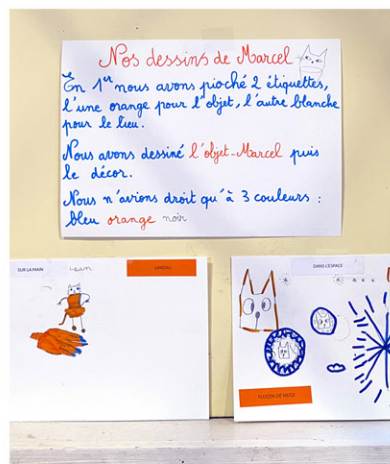 Nos dessins de Marcel
En 1er nous avons pioché 2 étiquettes,
l'une orange pour l'objet, l'autre blanche
pour le lieu.
Nous avons dessiné l'objet-Marcel puis
le décor.
Nous n'avions droit qu'à 3 couleurs :
bleu orange noir
SUR LA MAIN
DANS L'ESPACE
FLOCON DE NEIGE